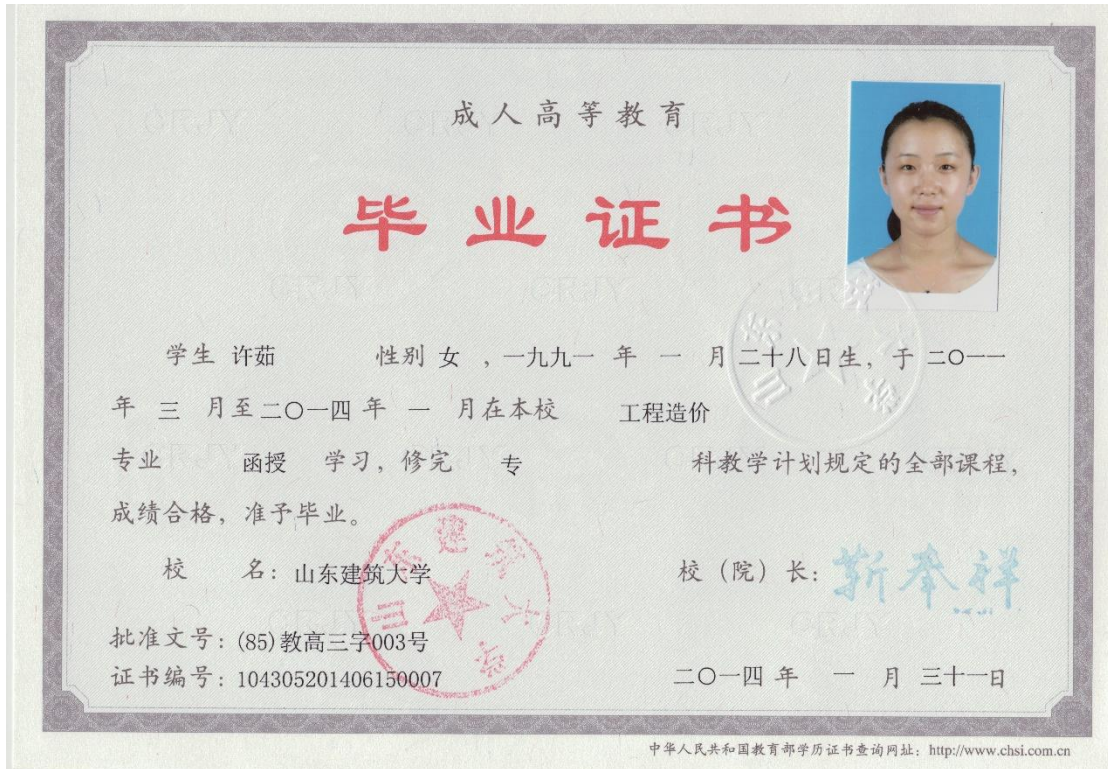 成人高等教育
毕业证书
学生 许茹 性别 女 ，一九九一 年 一 月 二十八日生，于 二〇一一
年 三 月至二〇一四 年 一 月在本校 工程造价
专业 函授 学习，修完 专 科教学计划规定的全部课程，
成绩合格，准予毕业。
校 名：山东建筑大学 校（院）长：靳奉祥
批准文号：(85)教高三字003号
证书编号：104305201406150007 二〇一四 年 一 月 三十一日
山东建筑大学
中华人民共和国教育部学历证书查询网址：http://www.chsi.com.cn